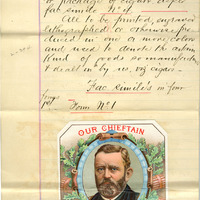 or package of cigars as per
fac simile No 1.
All to be printed, engraved
lithographed or otherwise pro-
duced in one or more colors
and used to denote the certain
kind of goods so manufactured
& dealt in by us, viz cigars.
"Fac simile's in four
forms
Form No 1
OUR CHIEFTAIN